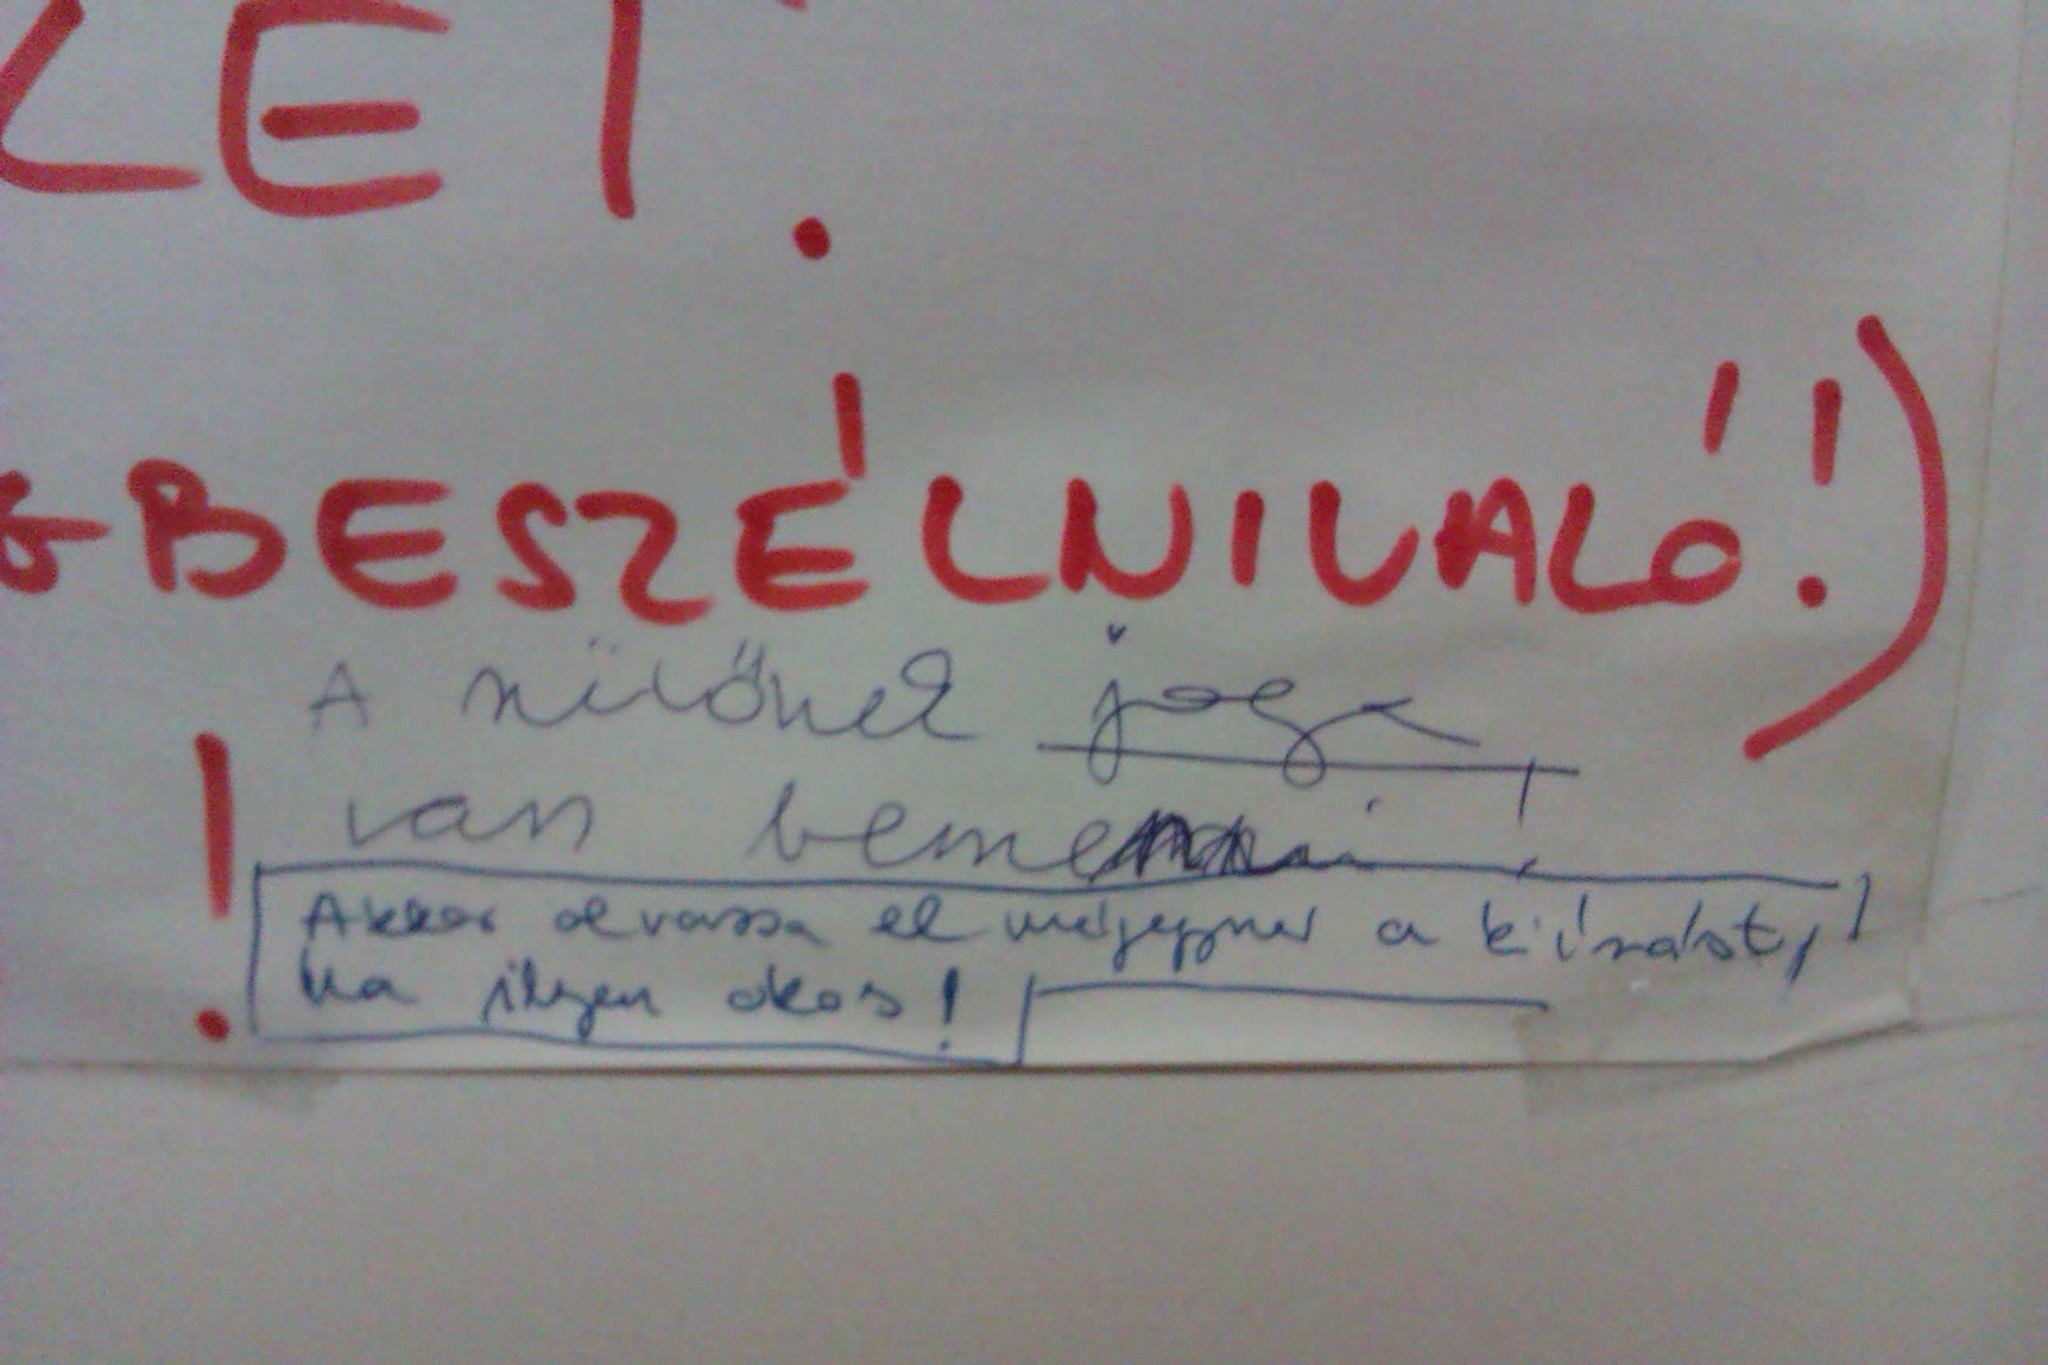 ZET.
GBESZÉLNIVALÓ!)
A szülőnek joga
van bemenni!
! Akkor olvassa el mégegyszer a kiírást,
ha ilyen okos!